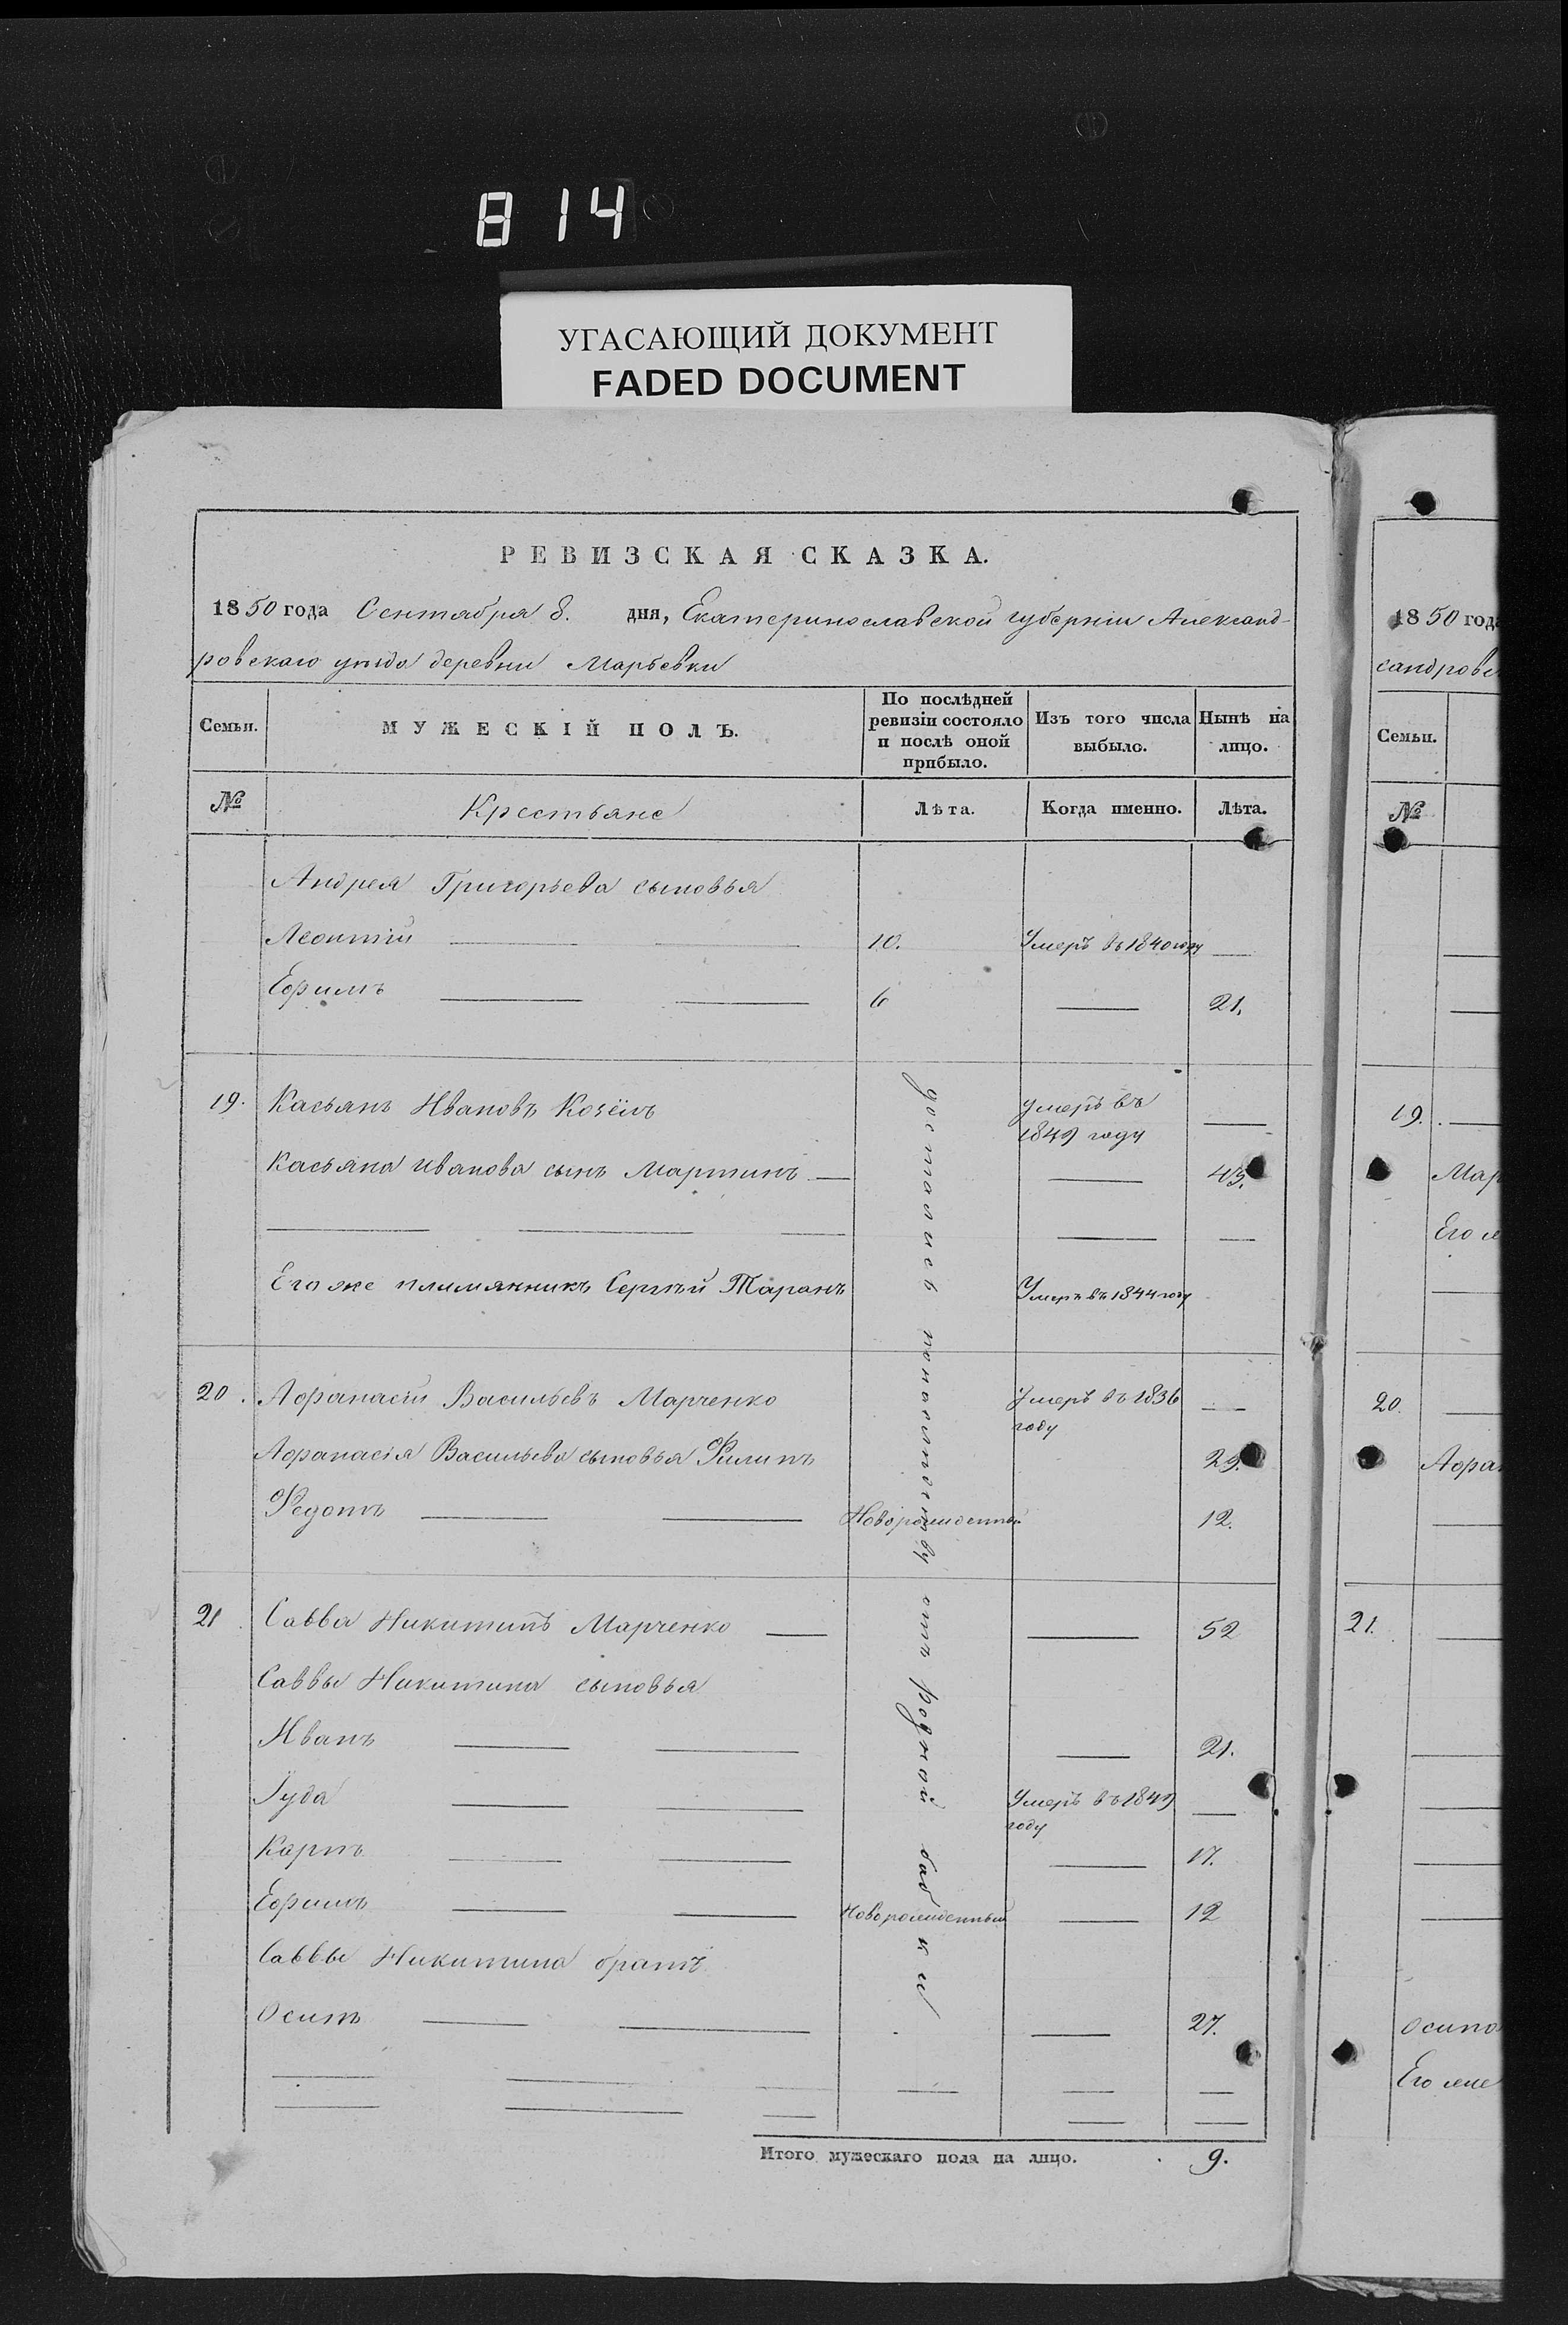 814
УГАСАЮЩИЙ ДОКУМЕНТ
FADED DOCUMENT
РЕВИЗСКАЯ СКАЗКА.
1850 года Сентября 8. дня, Екатеринославской губерніи Александ-
ровскаго уѣзда деревни Марьевки
Семьи. МУЖЕСКІЙ ПОЛЪ. По послѣдней ревизіи состояло и послѣ оной прибыло. Изъ того числа выбыло. Нынѣ на лицо.
№ Крестьяне Лѣта. Когда именно. Лѣта.
Андрея Григорьева сыновья
Леонтій — — 10. Умеръ въ 1840 году —
Ефимъ — — 6 — 21.
19. Касьянъ Ивановъ Козёлъ умеръ въ 1849 году —
Касьяна Иванова сынъ Мартинъ — — 43.
— — — — —
Его же племянникъ Сергѣй Таранъ Умеръ въ 1844 году
20. Афанасій Васильевъ Марченко Умеръ въ 1836 году —
Афанасія Васильева сыновья Филипъ 29.
Федотъ — — Новорожденный 12.
21 Савва Никитинъ Марченко — — 52
Саввы Никитина сыновья
Иванъ — — — 21.
Іуда — — Умеръ въ 1849 году —
Карпъ — — — 17.
Ефимъ — — Новорожденный — 12
Саввы Никитина братъ
Осипъ — — — 27.
— — — — — —
— — — — —
достались понаслѣдству отъ родной бабки
Итого мужескаго пола на лицо. 9.
1850 года
сандровс
Семьи.
№
19. —
Мар
Его ж
20. —
Афан
21. —
Осипа
Его же